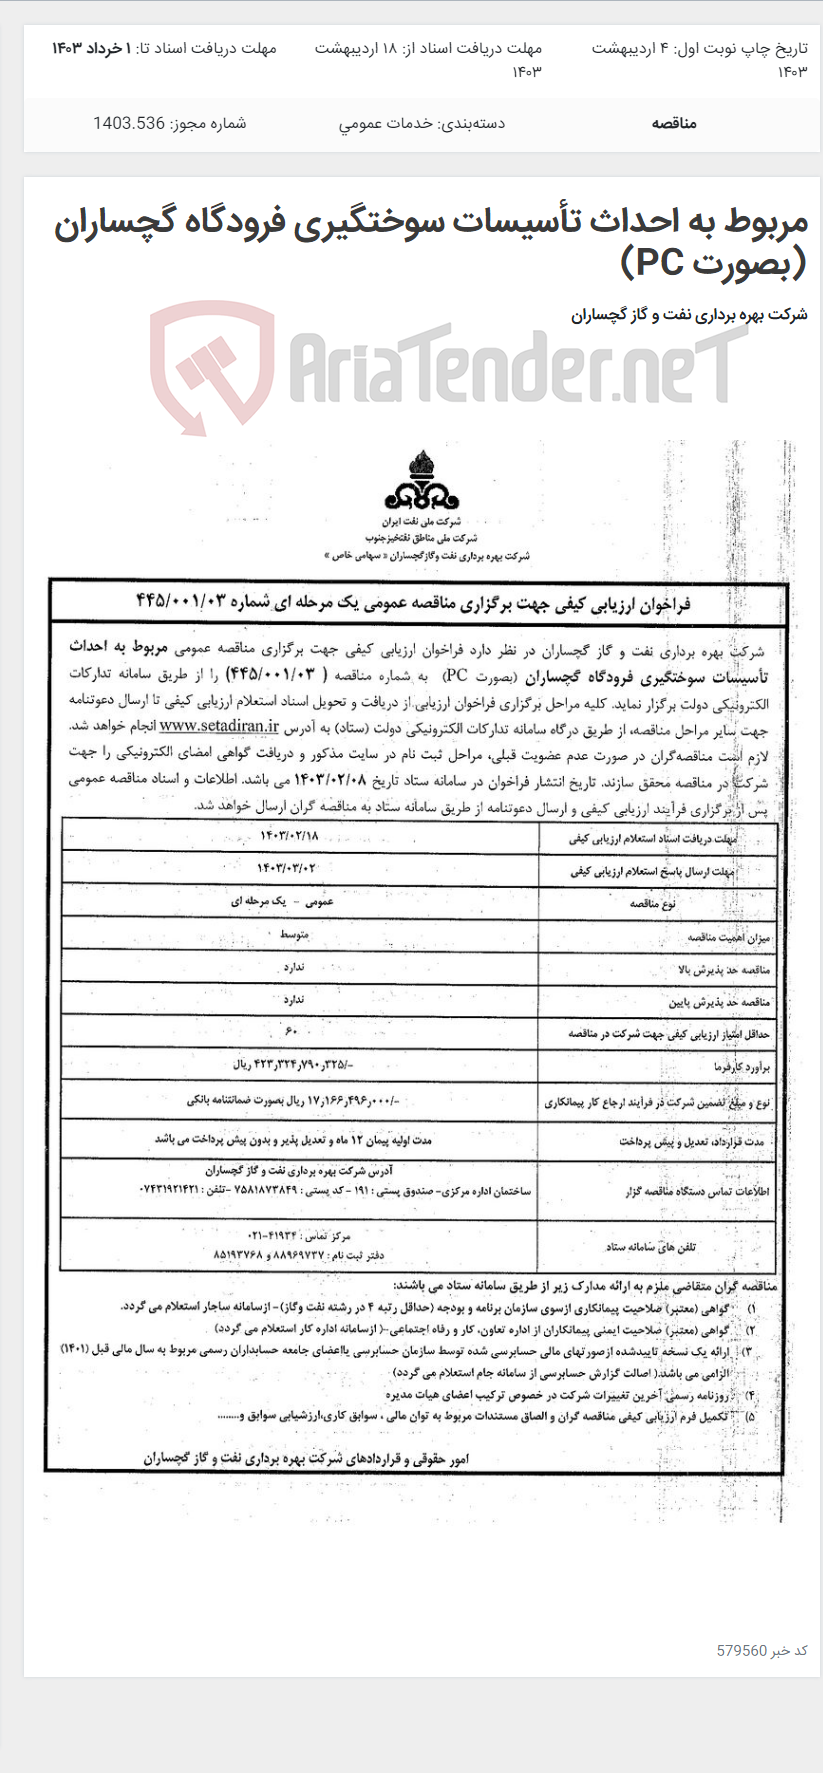 تاریخ چاپ نوبت اول: ۴ اردیبهشت ۱۴۰۳
مهلت دریافت اسناد از: ۱۸ اردیبهشت ۱۴۰۳
مهلت دریافت اسناد تا: ۱ خرداد ۱۴۰۳
مناقصه
دسته‌بندی: خدمات عمومي
شماره مجوز: 1403.536
مربوط به احداث تأسیسات سوختگیری فرودگاه گچساران
(بصورت PC)
شرکت بهره برداری نفت و گاز گچساران
AriaTender.neT
شرکت ملی نفت ایران
شرکت ملی مناطق نفتخیزجنوب
شرکت بهره برداری نفت وگازگچساران « سهامی خاص »
فراخوان ارزیابی کیفی جهت برگزاری مناقصه عمومی یک مرحله ای شماره ۴۴۵/۰۰۱/۰۳
شرکت بهره برداری نفت و گاز گچساران در نظر دارد فراخوان ارزیابی کیفی جهت برگزاری مناقصه عمومی مربوط به احداث
تأسیسات سوختگیری فرودگاه گچساران (بصورت PC) به شماره مناقصه ( ۴۴۵/۰۰۱/۰۳) را از طریق سامانه تدارکات
الکترونیکی دولت برگزار نماید. کلیه مراحل برگزاری فراخوان ارزیابی از دریافت و تحویل اسناد استعلام ارزیابی کیفی تا ارسال دعوتنامه
جهت سایر مراحل مناقصه، از طریق درگاه سامانه تدارکات الکترونیکی دولت (ستاد) به آدرس www.setadiran.ir انجام خواهد شد.
لازم است مناقصه‌گران در صورت عدم عضویت قبلی، مراحل ثبت نام در سایت مذکور و دریافت گواهی امضای الکترونیکی را جهت
شرکت در مناقصه محقق سازند. تاریخ انتشار فراخوان در سامانه ستاد تاریخ ۱۴۰۳/۰۲/۰۸ می باشد. اطلاعات و اسناد مناقصه عمومی
پس از برگزاری فرآیند ارزیابی کیفی و ارسال دعوتنامه از طریق سامانه ستاد به مناقصه گران ارسال خواهد شد.
مهلت دریافت اسناد استعلام ارزیابی کیفی ۱۴۰۳/۰۲/۱۸
مهلت ارسال پاسخ استعلام ارزیابی کیفی ۱۴۰۳/۰۳/۰۲
نوع مناقصه عمومی - یک مرحله ای
میزان اهمیت مناقصه متوسط
مناقصه حد پذیرش بالا ندارد
مناقصه حد پذیرش پایین ندارد
حداقل امتیاز ارزیابی کیفی جهت شرکت در مناقصه ۶۰
برآورد کارفرما ۴۲۳٫۳۲۴٫۷۹۰٫۳۲۵/- ریال
نوع و مبلغ تضمین شرکت در فرآیند ارجاع کار پیمانکاری ۱۷٫۱۶۶٫۴۹۶٫۰۰۰/- ریال بصورت ضمانتنامه بانکی
مدت قرارداد، تعدیل و پیش پرداخت مدت اولیه پیمان ۱۲ ماه و تعدیل پذیر و بدون پیش پرداخت می باشد
اطلاعات تماس دستگاه مناقصه گزار آدرس شرکت بهره برداری نفت و گاز گچساران
ساختمان اداره مرکزی- صندوق پستی : ۱۹۱ - کد پستی : ۷۵۸۱۸۷۳۸۴۹ -تلفن : ۰۷۴۳۱۹۲۱۴۲۱
تلفن های سامانه ستاد مرکز تماس : ۴۱۹۳۴-۰۲۱
دفتر ثبت نام : ۸۸۹۶۹۷۳۷ و ۸۵۱۹۳۷۶۸
مناقصه گران متقاضی ملزم به ارائه مدارک زیر از طریق سامانه ستاد می باشند:
۱) گواهی (معتبر) صلاحیت پیمانکاری ازسوی سازمان برنامه و بودجه (حداقل رتبه ۴ در رشته نفت وگاز)- ازسامانه ساجار استعلام می گردد.
۲) گواهی (معتبر) صلاحیت ایمنی پیمانکاران از اداره تعاون، کار و رفاه اجتماعی-( ازسامانه اداره کار استعلام می گردد)
۳) ارائه یک نسخه تاییدشده ازصورتهای مالی حسابرسی شده توسط سازمان حسابرسی یااعضای جامعه حسابداران رسمی مربوط به سال مالی قبل (۱۴۰۱)
الزامی می باشد.( اصالت گزارش حسابرسی از سامانه جام استعلام می گردد)
۴) روزنامه رسمی آخرین تغییرات شرکت در خصوص ترکیب اعضای هیات مدیره
۵) تکمیل فرم ارزیابی کیفی مناقصه گران و الصاق مستندات مربوط به توان مالی ، سوابق کاری،ارزشیابی سوابق و........
امور حقوقی و قراردادهای شرکت بهره برداری نفت و گاز گچساران
کد خبر 579560